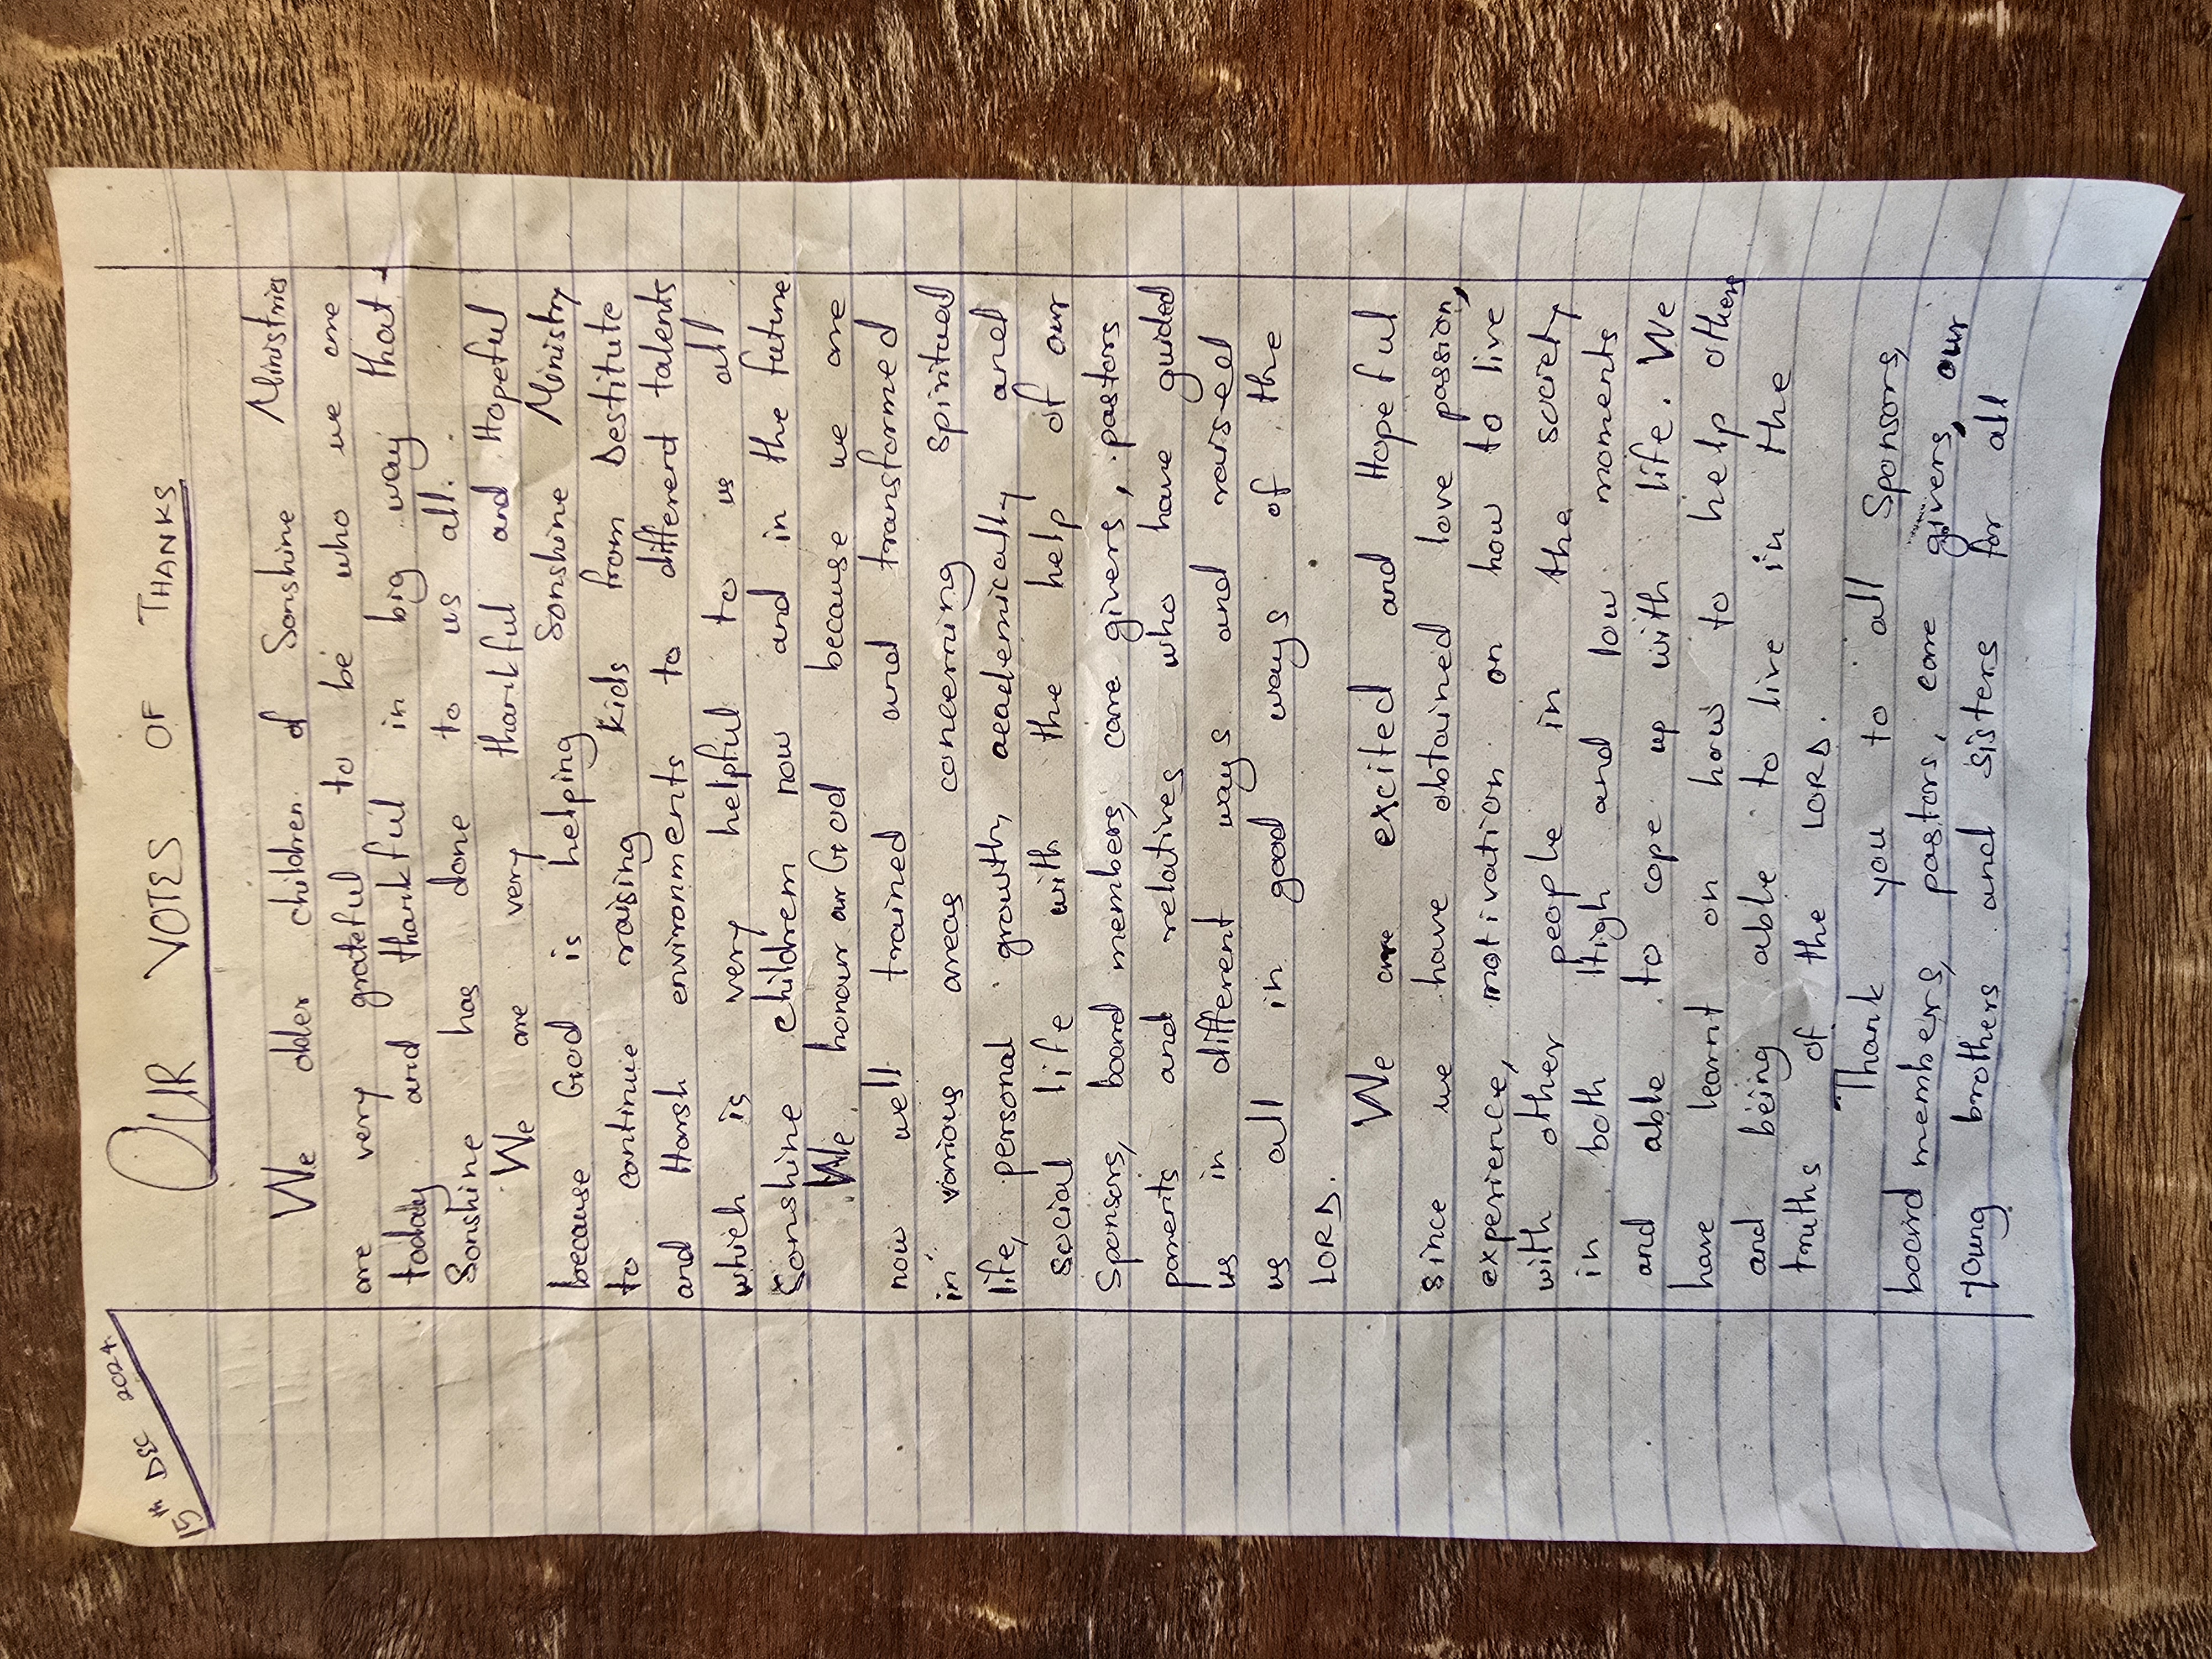 15th DEC 2024
OUR VOTES OF THANKS
We older children of Sonshine Ministries
are very grateful to be who we are
today and thankful in big way that
Sonshine has done to us all.
We are very thankful and Hopeful
because God is helping Sonshine Ministry
to continue raising kids from Destitute
and Harsh environments to differend talents
which is very helpful to us all
Sonshine children now and in the future
We honour our God because we are
now well trained and transformed
in various areas concerning spiritual
life, personal growth, academically and
social life with the help of our
Sponsors, board members, care givers, pastors
parents and relatives who have guided
us in different ways and raised
us all in good ways of the
LORD.
We are excited and Hopeful
since we have obtained love passion,
experience, motivation on how to live
with other people in the society
in both High and low moments
and able to cope up with life. We
have learnt on how to help others
and being able to live in the
truths of the LORD.
Thank you to all Sponsors,
board members, pastors, care givers, our
young brothers and sisters for all